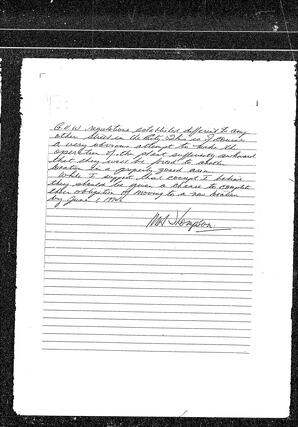 G.V.W. regulations established different to any
other street in the City. This is otherwise
a very obvious attempt to make the
operation of the plant sufficiently awkward
that they will be forced to another
location in a properly zoned area.
While I suggest that concept I believe
they should be given a chance to complete
their obligation of moving to a new location
by June 1,
Thompson